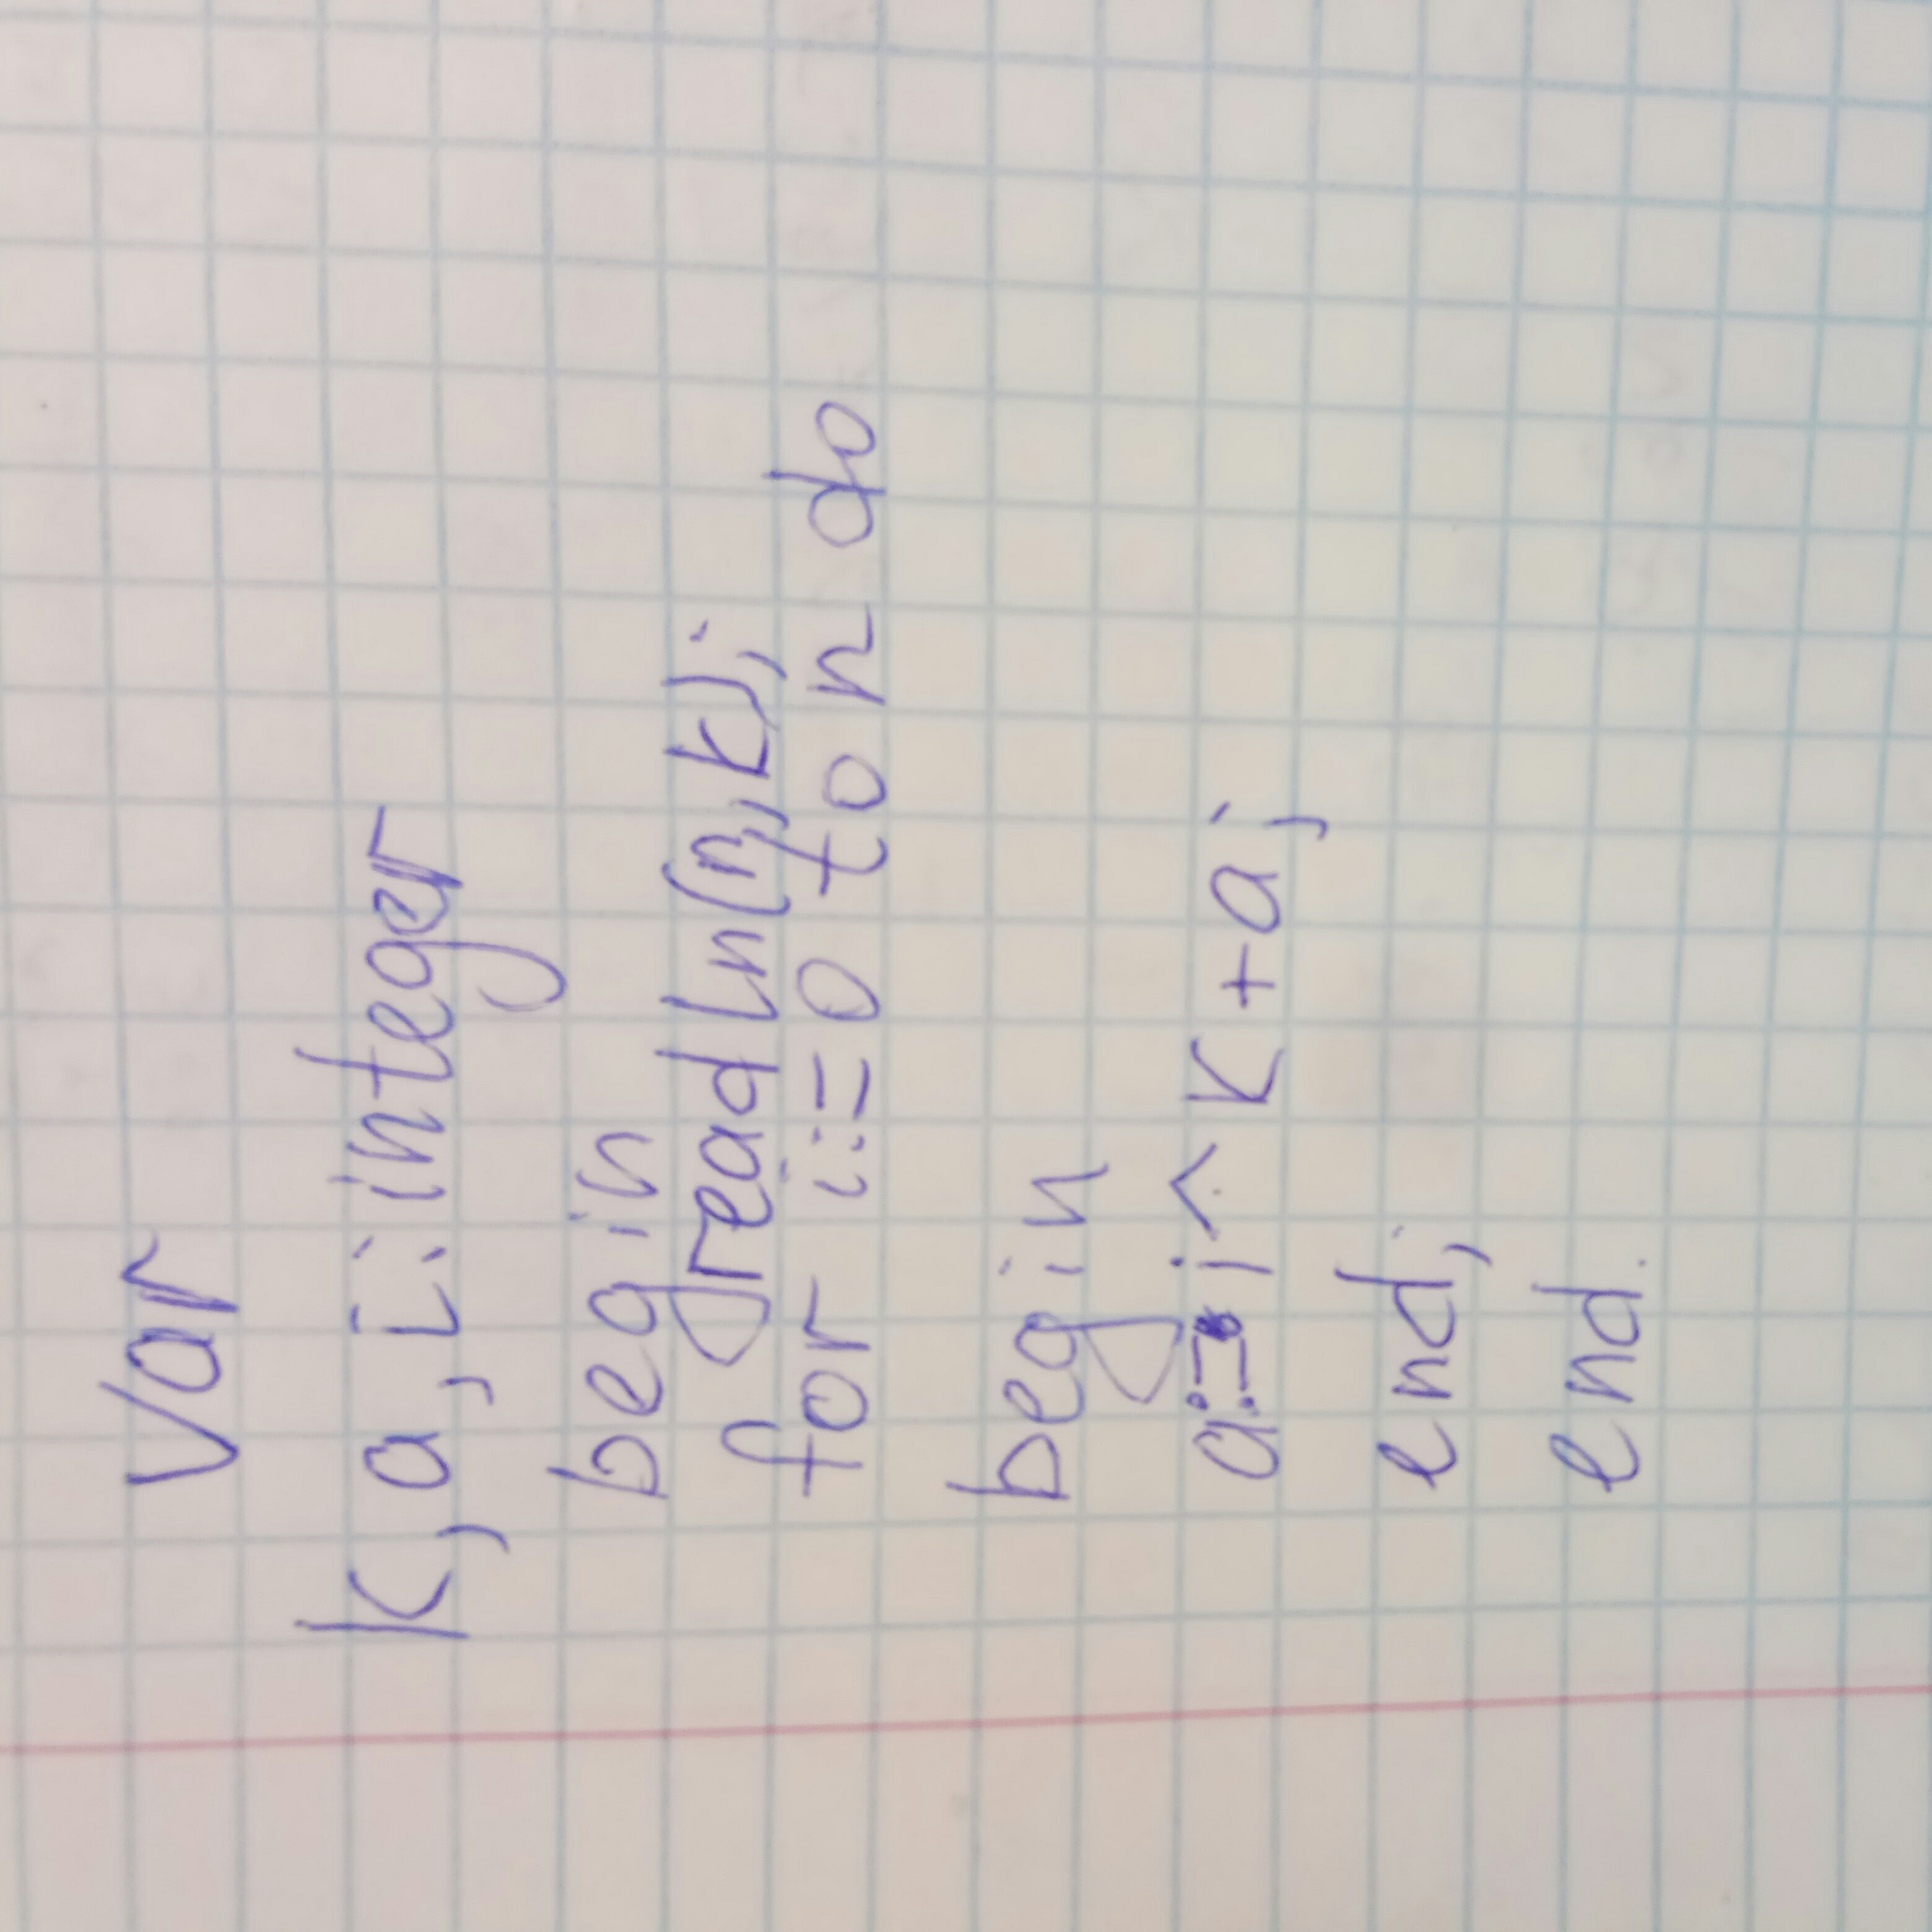 Var
k, a, i: integer
begin
readln(n, k);
for i:= 0 to n do
begin
a:= i^k+a;
end;
end.